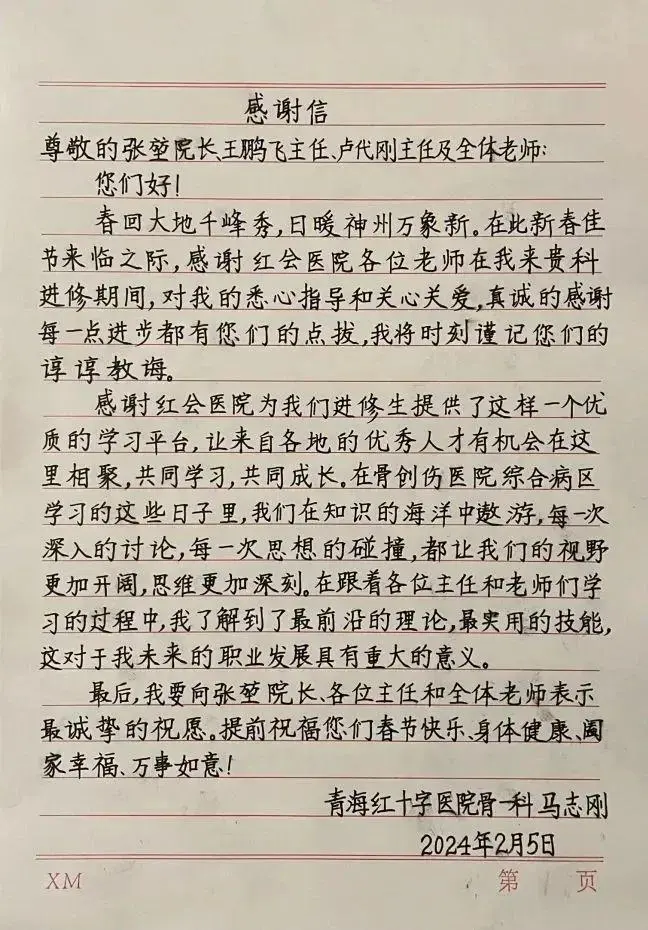 感谢信
尊敬的张堃院长、王鹏飞主任、卢代刚主任及全体老师:
您们好!
春回大地千峰秀,日暖神州万象新。在此新春佳
节来临之际,感谢红会医院各位老师在我来贵科
进修期间,对我的悉心指导和关心关爱,真诚的感谢
每一点进步都有您们的点拔,我将时刻谨记您们的
谆谆教诲。
感谢红会医院为我们进修生提供了这样一个优
质的学习平台,让来自各地的优秀人才有机会在这
里相聚,共同学习,共同成长。在骨创伤医院综合病区
学习的这些日子里,我们在知识的海洋中遨游,每一次
深入的讨论,每一次思想的碰撞,都让我们的视野
更加开阔,思维更加深刻。在跟着各位主任和老师们学
习的过程中,我了解到了最前沿的理论,最实用的技能,
这对于我未来的职业发展具有重大的意义。
最后,我要向张堃院长、各位主任和全体老师表示
最诚挚的祝愿。提前祝福您们春节快乐、身体健康、阖
家幸福、万事如意!
青海红十字医院骨一科马志刚
2024年2月5日
XM 第 页